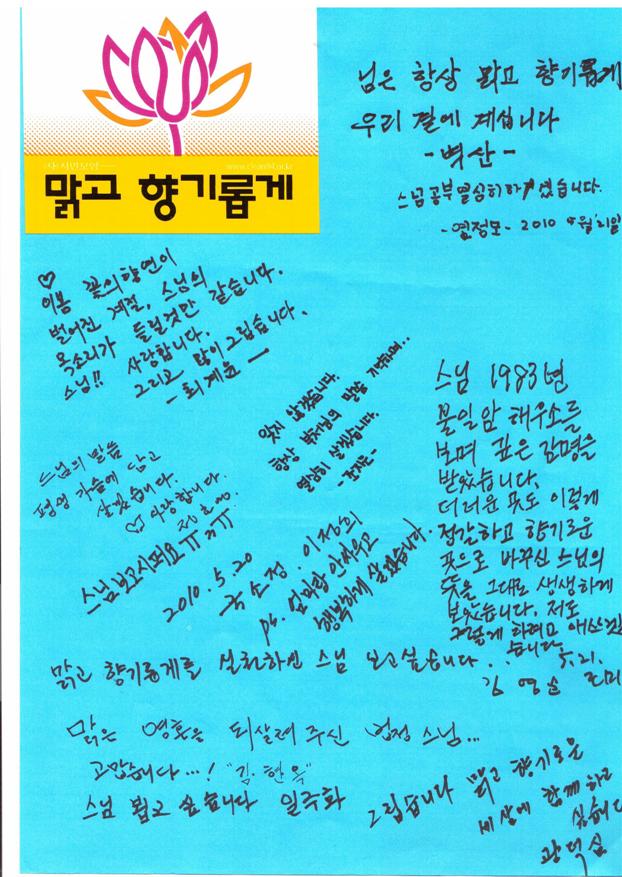 맑고 향기롭게
님은 항상 맑고 향기롭게
우리 곁에 계십니다
- 벽산 -
스님 공부 열심히 하겠습니다.
2010
♡
이봄 꽃의 향연이
벌어진 계절, 스님의
목소리가 들릴것만 같습니다.
스님!! 사랑합니다.
그리고 많이 그립습니다.
- 최계윤 -
잊지 않겠습니다.
항상 부처님의 말씀 기억하며..
열심히 살겠습니다.
스님의 말씀
평생 가슴에 담고
살겠습니다.
♡ 사랑합니다.
스님 보고시퍼요 ㅠㅠㅠ
2010. 5. 20
국소정. 이정희
ps. 엄마랑 안싸우고
행복하게 살겠습니다.
스님 1983년
불일암 해우소를
보며 깊은 감명을
받았습니다.
더러운 곳도 이렇게
정갈하고 향기로운
곳으로 바꾸신 스님의
뜻을 그대로 생생하게
보았습니다. 저도
그렇게 하려고 애쓰겠
습니다.
5. 21.
김영순
맑고 향기롭게를 실천하신 스님 보고싶습니다...
맑은 영혼을 되살려 주신 법정 스님...
고맙습니다...! "김현옥"
스님 뵙고 싶습니다 일주화
그립습니다 맑고 향기로운
세상에 함께 하고
싶습니다
광덕심